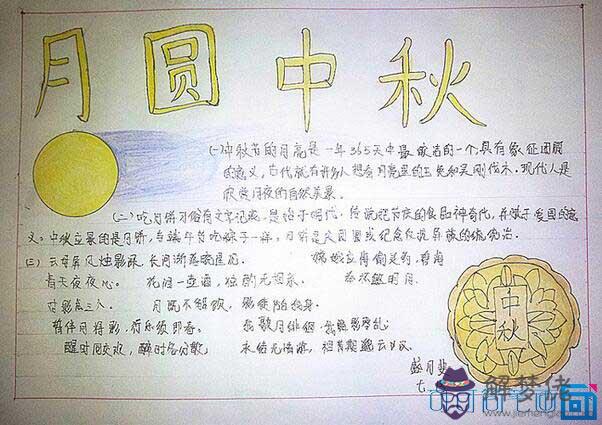 月圆中秋
(一)中秋节的月亮是一年365天中最皎洁的一个,具有象征团圆
的意义,古代就有许多人想有月亮里的玉兔和吴刚伐木。现代人是
欣赏月夜的自然美景。
(二)吃月饼习俗有文字记载,是始于明代,传说把节庆的食品神奇化,并赋于爱国的意
义。中秋应景的是月饼,与端午节吃粽子一样,月饼是
(三)云母屏风烛影深,长河渐落晓星沉。 嫦娥应悔偷灵药,碧海
青天夜夜心。 花间一壶酒,独酌无相亲。 举杯邀明月,
对影成三人。 月既不解饮,影徒随我身。
暂伴月将影,行乐须即春。 我歌月徘徊,我舞影零乱。
醒时同交欢,醉时各分散。 永结无情游,相期邈云汉。
中秋
解梦佬
www.jiemenglao.com